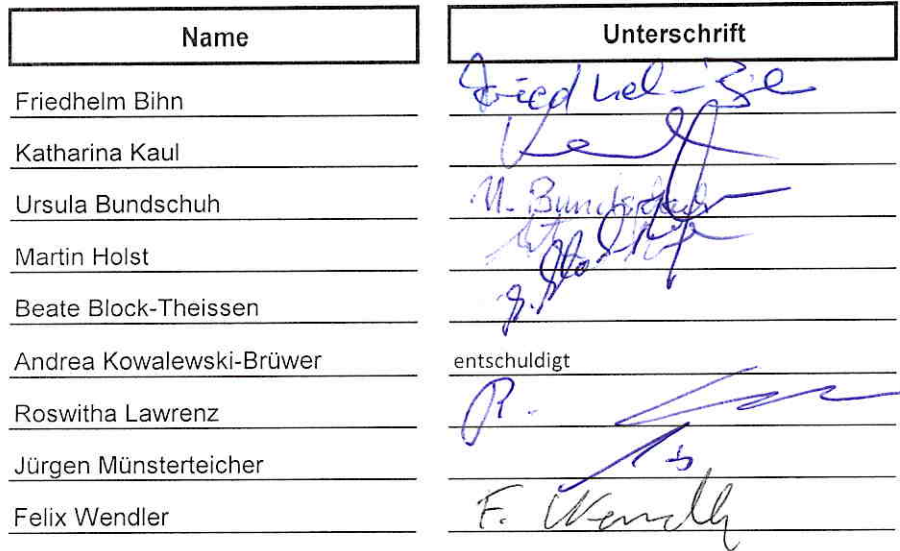 Name Unterschrift
Friedhelm Bihn
Katharina Kaul
Ursula Bundschuh U. Bundschuh
Martin Holst
Beate Block-Theissen
Andrea Kowalewski-Brüwer entschuldigt
Roswitha Lawrenz R.
Jürgen Münsterteicher
Felix Wendler F. Wendler